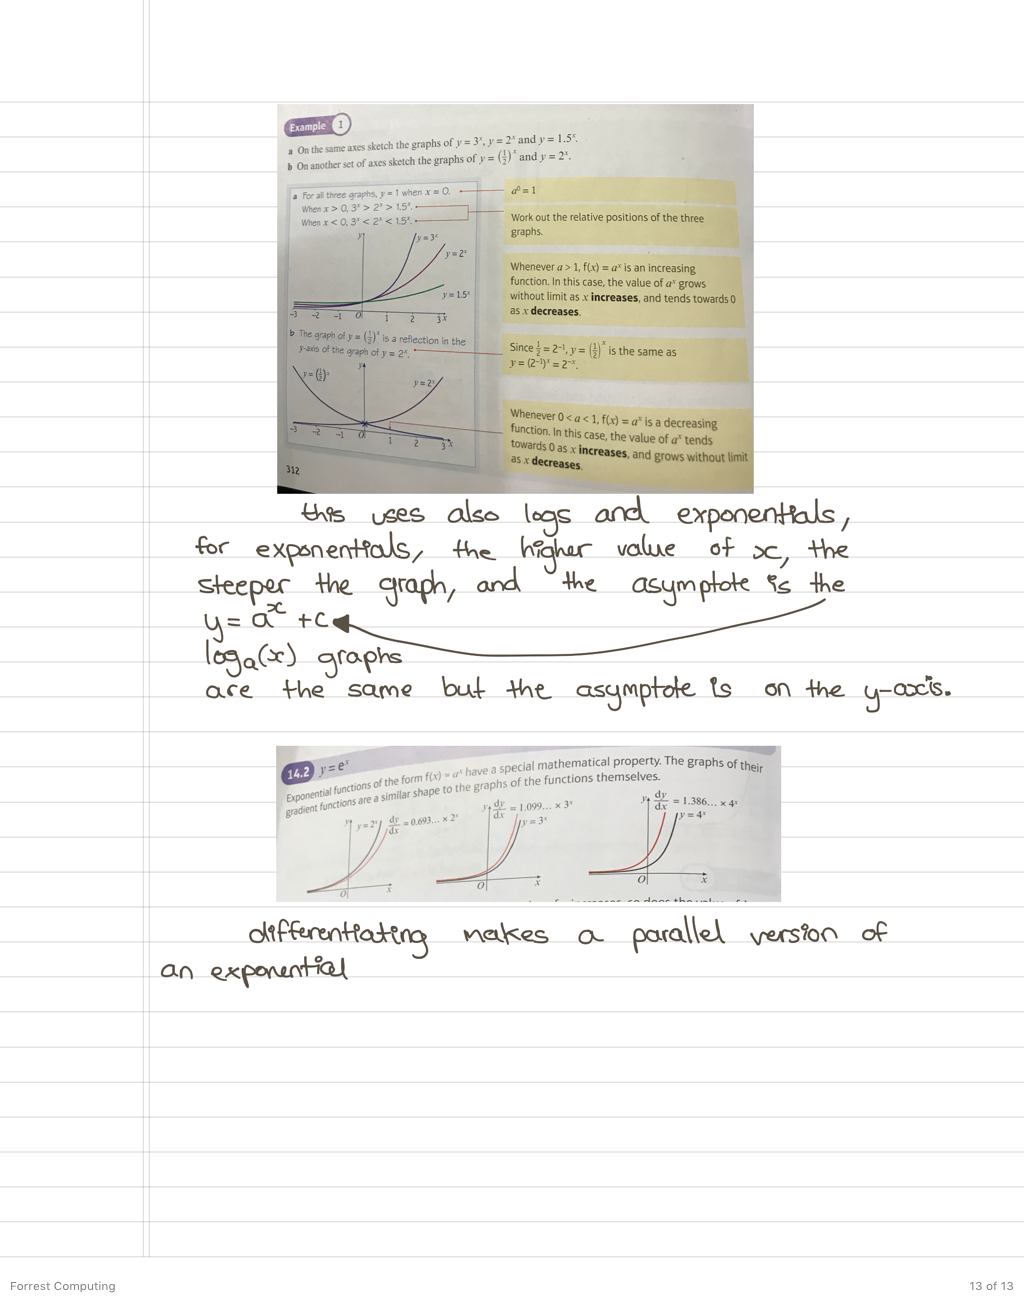 Example 1
a On the same axes sketch the graphs of y = 3ˣ, y = 2ˣ and y = 1.5ˣ.
b On another set of axes sketch the graphs of y = (1/2)ˣ and y = 2ˣ.
a For all three graphs, y = 1 when x = 0.
When x > 0, 3ˣ > 2ˣ > 1.5ˣ.
When x < 0, 3ˣ < 2ˣ < 1.5ˣ.
a⁰ = 1
Work out the relative positions of the three
graphs.
y
y = 3ˣ
y = 2ˣ
y = 1.5ˣ
-3 -2 -1 O 1 2 3 x
Whenever a > 1, f(x) = aˣ is an increasing
function. In this case, the value of aˣ grows
without limit as x increases, and tends towards 0
as x decreases.
b The graph of y = (1/2)ˣ is a reflection in the
y-axis of the graph of y = 2ˣ.
Since 1/2 = 2⁻¹, y = (1/2)ˣ is the same as
y = (2⁻¹)ˣ = 2⁻ˣ.
y
y = (1/2)ˣ
y = 2ˣ
-3 -2 -1 O 1 2 3 x
Whenever 0 < a < 1, f(x) = aˣ is a decreasing
function. In this case, the value of aˣ tends
towards 0 as x increases, and grows without limit
as x decreases.
312
this uses also logs and exponentials,
for exponentials, the higher value of x, the
steeper the graph, and the asymptote is the
y = aˣ + c
logₐ(x) graphs
are the same but the asymptote is on the y-axis.
14.2 y = eˣ
Exponential functions of the form f(x) = aˣ have a special mathematical property. The graphs of their
gradient functions are a similar shape to the graphs of the functions themselves.
y y = 2ˣ dy/dx = 0.693... × 2ˣ
O x
y dy/dx = 1.099... × 3ˣ
y = 3ˣ
O x
y dy/dx = 1.386... × 4ˣ
y = 4ˣ
O x
differentiating makes a parallel version of
an exponential
Forrest Computing
13 of 13